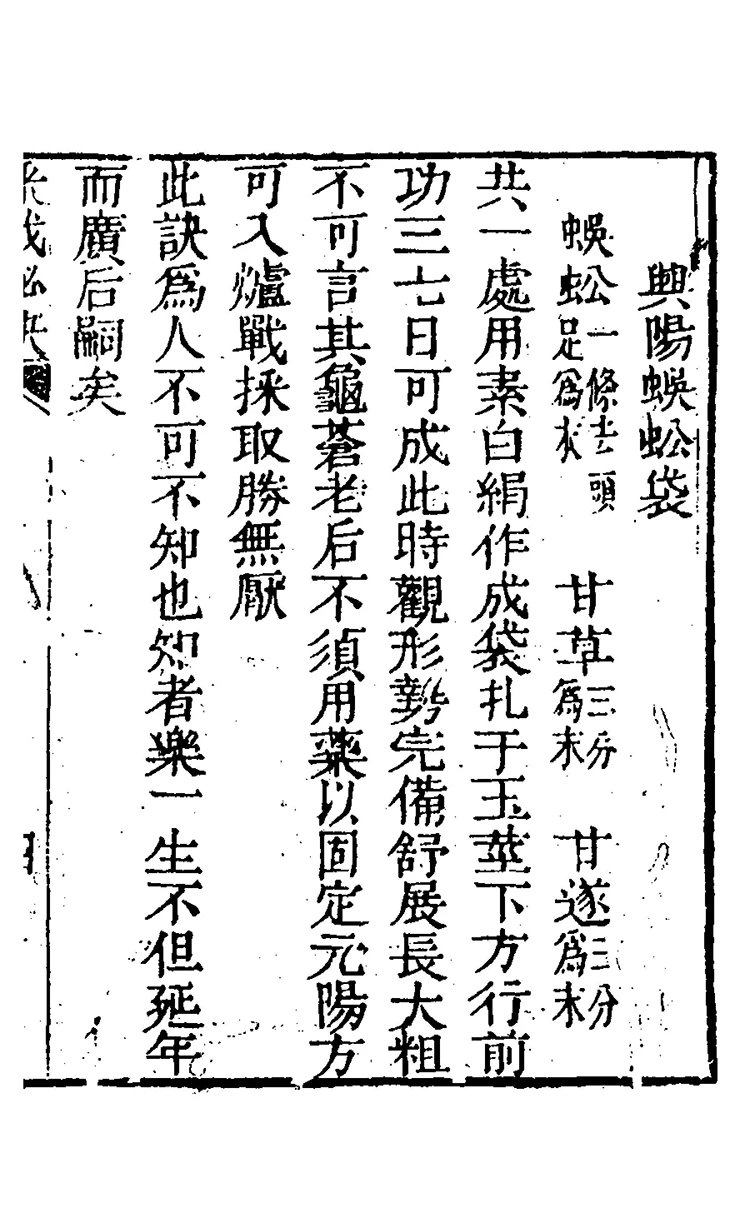 興陽蜈蚣袋
蜈蚣一條去頭足爲灰　甘草三分爲末　甘遂三分爲末
共一處用素白絹作成袋扎于玉莖下方行前
功三七日可成此時觀形勢完備舒展長大粗
不可言其龜蒼老后不須用藥以固定元陽方
可入爐戰採取勝無厭
此訣爲人不可不知也知者樂一生不但延年
而廣后嗣矣